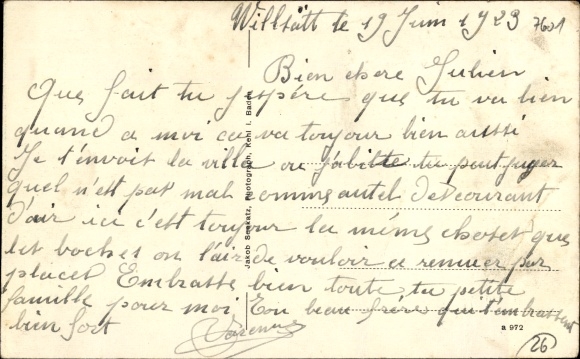 Willstätt le 19 Juin 1923
7601
Bien chere Julien
Que fait tu j'espére que tu va bien
quand a moi ca va toujour bien aussi
Je t'envoit la ville ou j'abitte tu peut juger
quel n'est pat mal comme autel de courant
d'air ici c'est toujour la même chose que
les boches on l'air de vouloir a remuer par
placet Embrasse bien toute ta petite
famille pour moi Ton beau frère qui t'embrasse
bien fort
Jakob Seckatz, Photograph, Kehl i. Baden
a 972
26